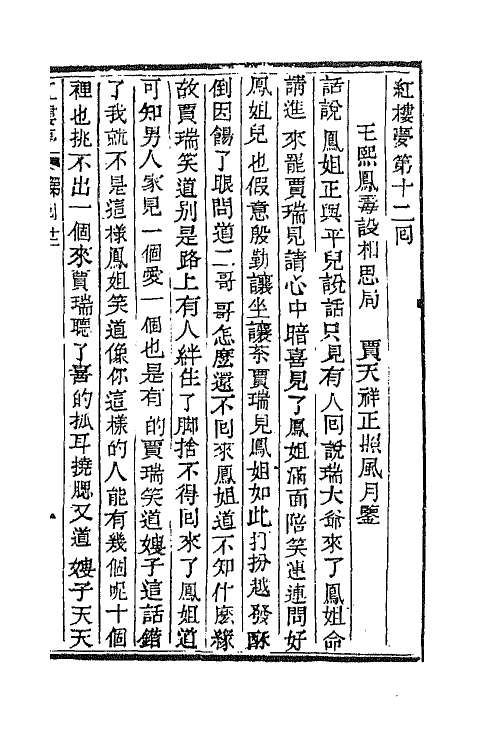 紅樓夢第十二囘
王熙鳳毒設相思局　賈天祥正照風月鑒
話說鳳姐正與平兒說話只見有人囘說瑞大爺來了鳳姐命
請進來罷賈瑞見請心中暗喜見了鳳姐滿面陪笑連連問好
鳳姐兒也假意殷勤讓坐讓茶賈瑞見鳳姐如此打扮越發酥
倒因餳了眼問道二哥哥怎麽還不囘來鳳姐道不知什麽緣
故賈瑞笑道别是路上有人絆住了脚捨不得囘來了鳳姐道
可知男人家見一個愛一個也是有的賈瑞笑道嫂子這話錯
了我就不是這樣鳳姐笑道像你這樣的人能有幾個呢十個
裡也挑不出一個來賈瑞聽了喜的抓耳撓腮又道嫂子天天